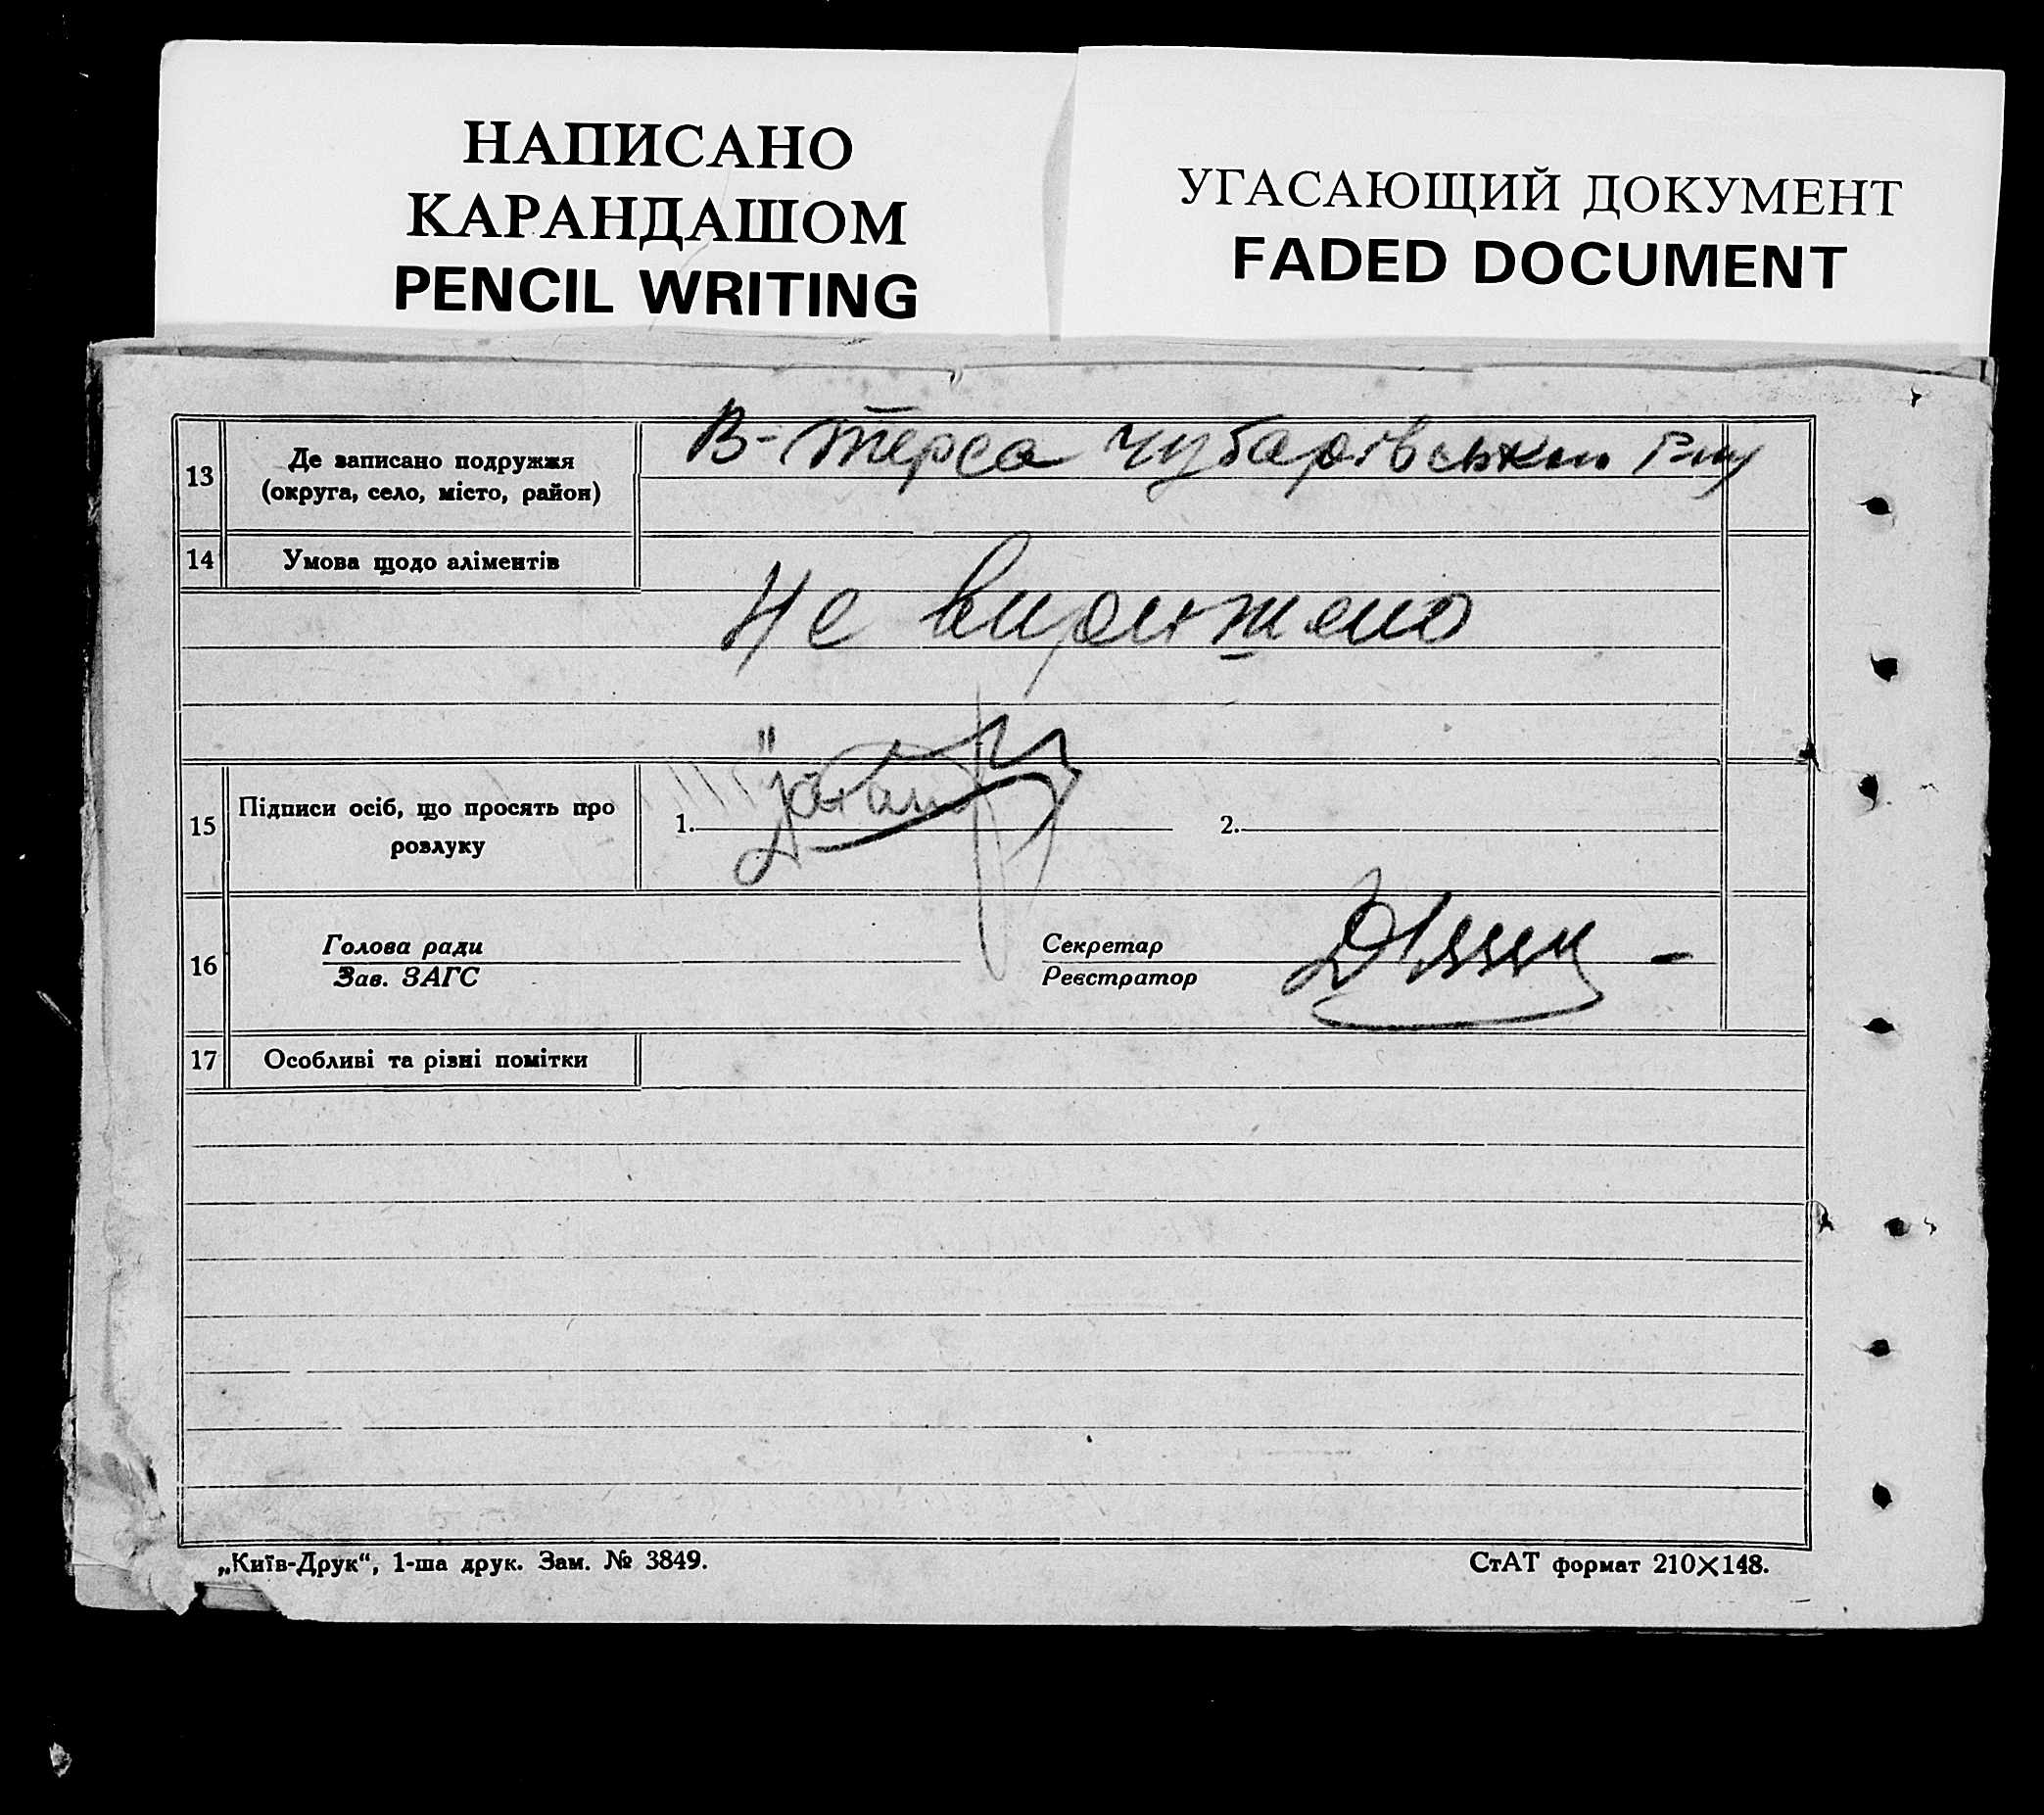 НАПИСАНО
КАРАНДАШОМ
PENCIL WRITING
УГАСАЮЩИЙ ДОКУМЕНТ
FADED DOCUMENT
13 Де записано подружжя
(округа, село, місто, район)
В-Терса Чубарівськ
14 Умова щодо аліментів
Не вирішено
15 Підписи осіб, що просять про
розлуку
1. 2.
16 Голова ради
Зав. ЗАГС
Секретар
Реєстратор
17 Особливі та різні помітки
„Київ-Друк“, 1-ша друк. Зам. № 3849.
СтАТ формат 210×148.